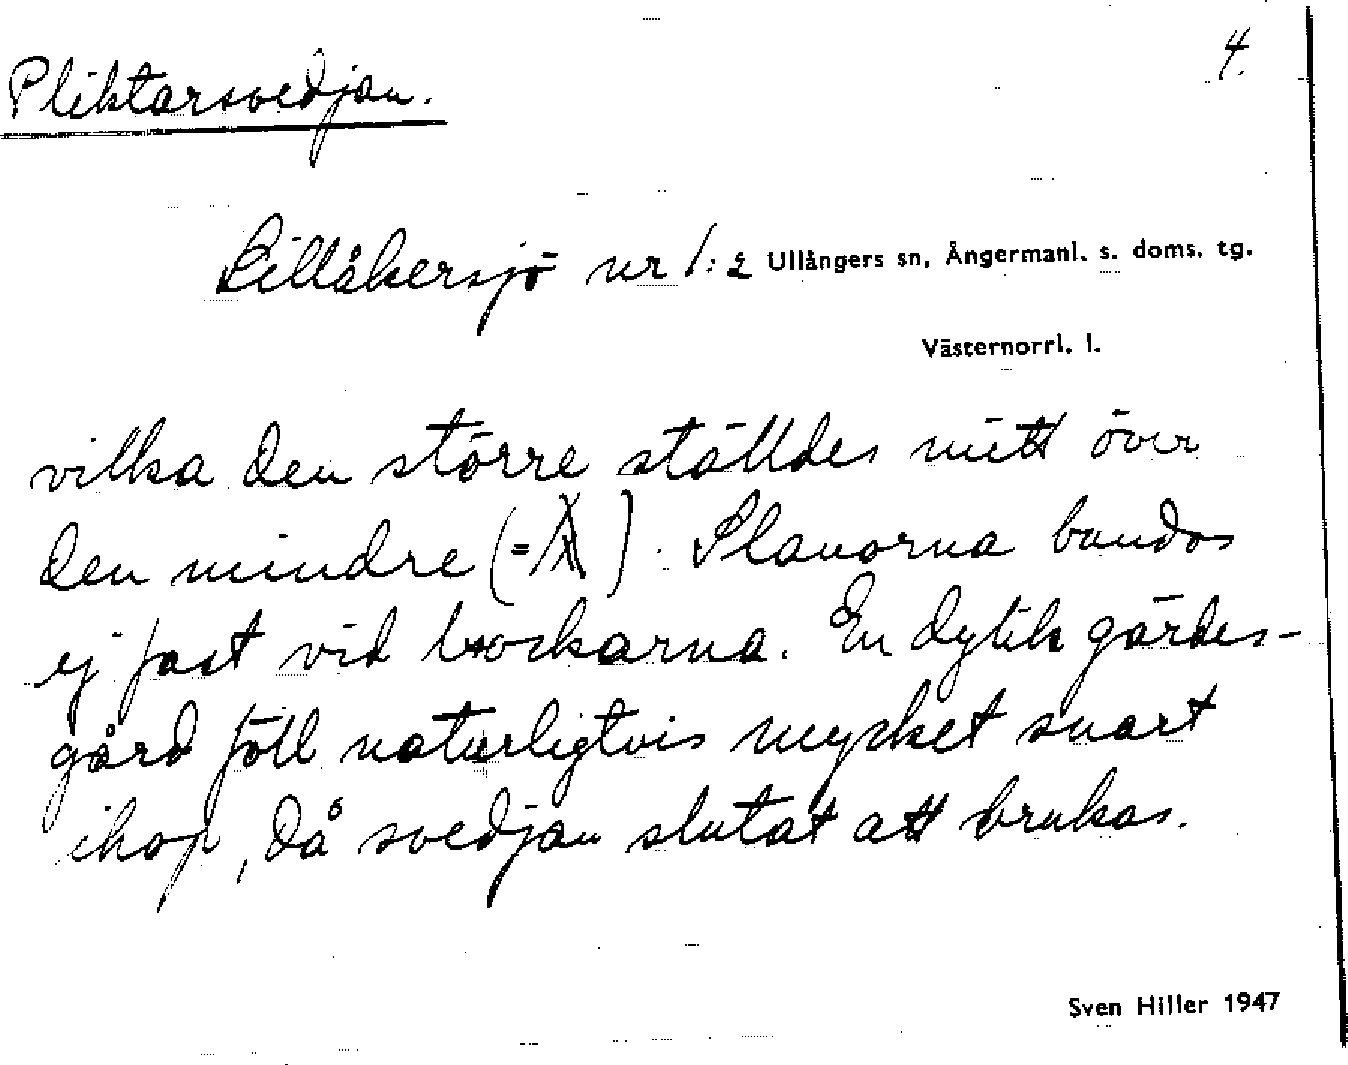 Pliktarsvedjan.
4.
Lillåkersjö nr 1:2 Ullångers sn, Ångermanl. s. doms. tg.
Västernorrl. l.
vilka den större ställdes mitt över
den mindre (= ). Slanorna bandos
ej fast vid bockarna. En dylik gärdes-
gård föll naturligtvis mycket snart
ihop, då svedjan slutat att brukas.
Sven Hiller 1947